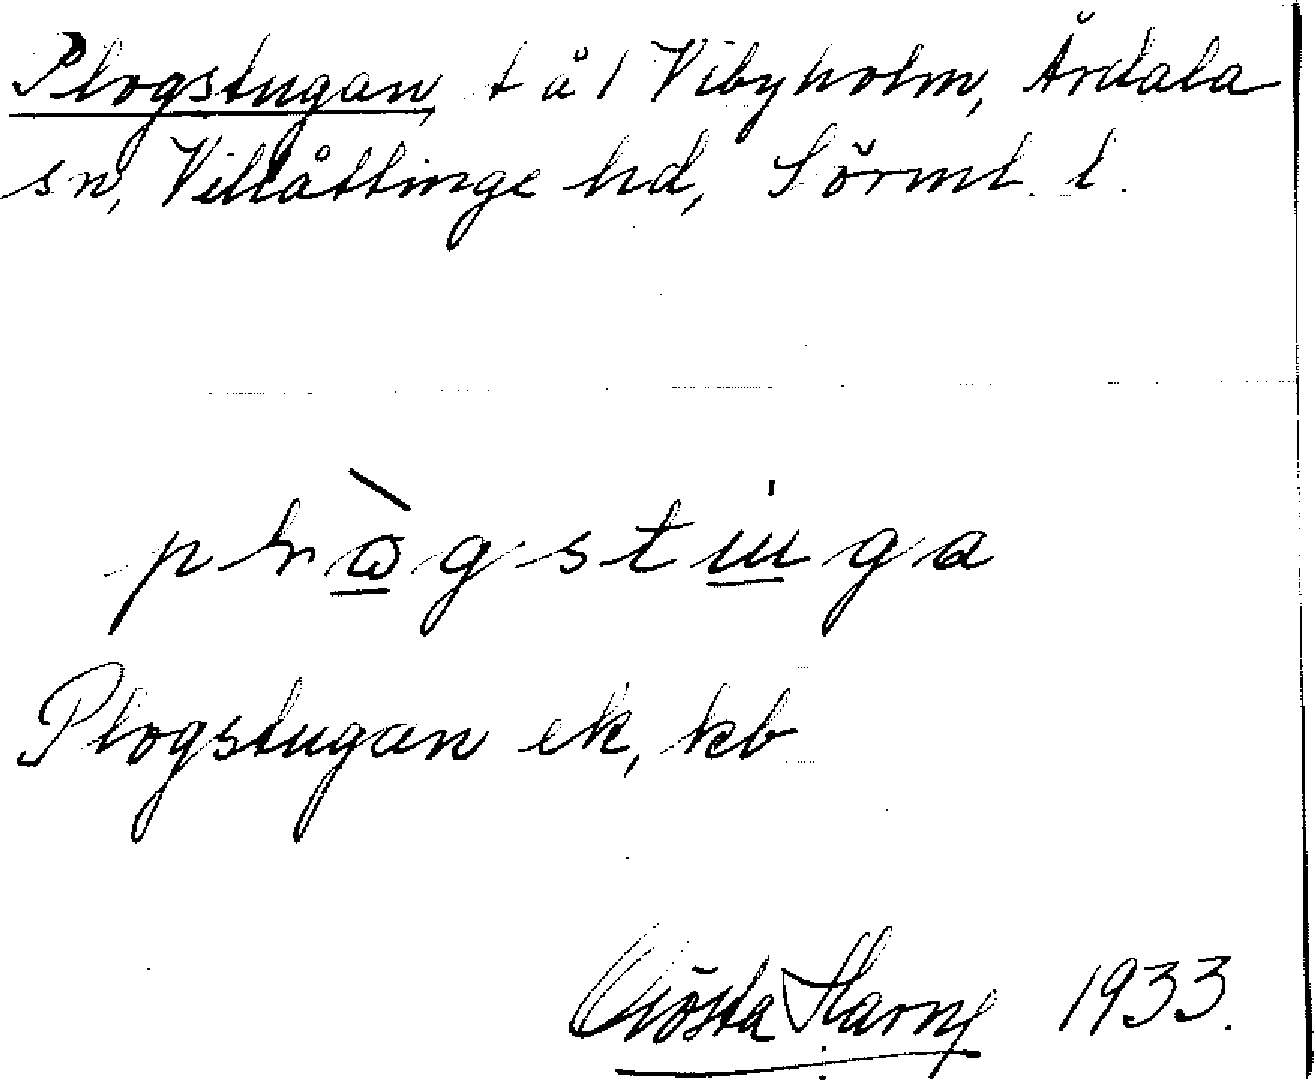 Plogstugan, t å / Vibyholm, Årdala
sn, Villåttinge hd, Sörml. l.
Plogstugan ek, kb
Gösta Harny 1933.